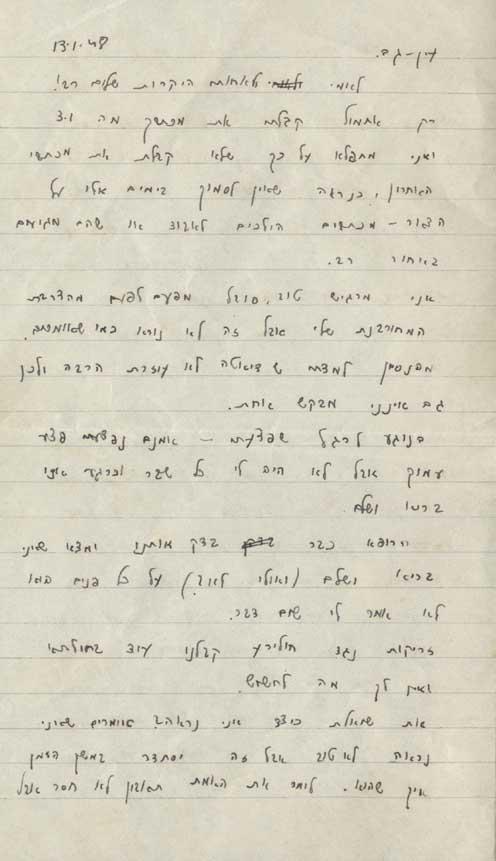 עין-גב. 13.1.48
לאמי ולאחות היקרות שלום רב!
רק אתמול קבלתי את מכתבך מה 3.1
ואני מתפלא על כך שלא קבלת את מכתבי
האחרון, כנראה שאין לסמוך בימים אלו על
הדאר - מכתבים הולכים לאבוד או שהם מגיעים
באיחור רב.
אני מרגיש טוב, סובל מפעם לפעם מהקיבה
שלי אבל זה לא נורא כמו שאומרים.
למדתי ש דיאטה לא עוזרת הרבה ולכן
גם אינני מבקש אותה.
בנוגע לרגל שפצעתי - אמנם נפצעתי פצע
עמוק אבל לא היה לי כל שבר וכרגע אני
בריא ושלם.
הרופא כבר בדק אותנו ומצא שאני
בריא ושלם (ואולי לא?) על כל פנים הוא
לא אמר לי שום דבר.
זריקות נגד חולירע קבלנו עוד
ואין לך מה לחשוש.
את שואלת כיצד אני נראה? אומרים שאני
נראה לא טוב אבל זה יסתדר במשך הזמן
איך שהוא. לומר את האמת תאבון לא חסר אבל